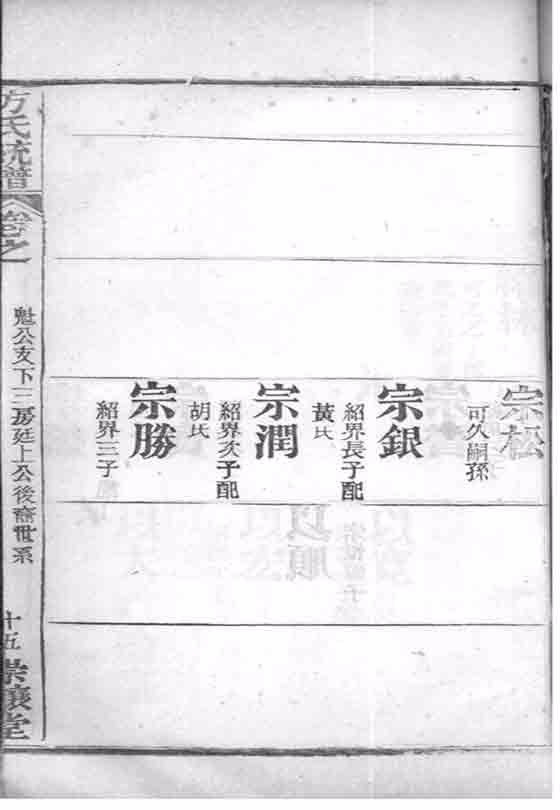 宗松
可久嗣孫
宗銀
紹界長子配
黃氏
宗潤
紹界次子配
胡氏
宗勝
紹界三子
方氏統譜
卷之
魁公支下三房廷上公後裔世系
十五
崇讓堂